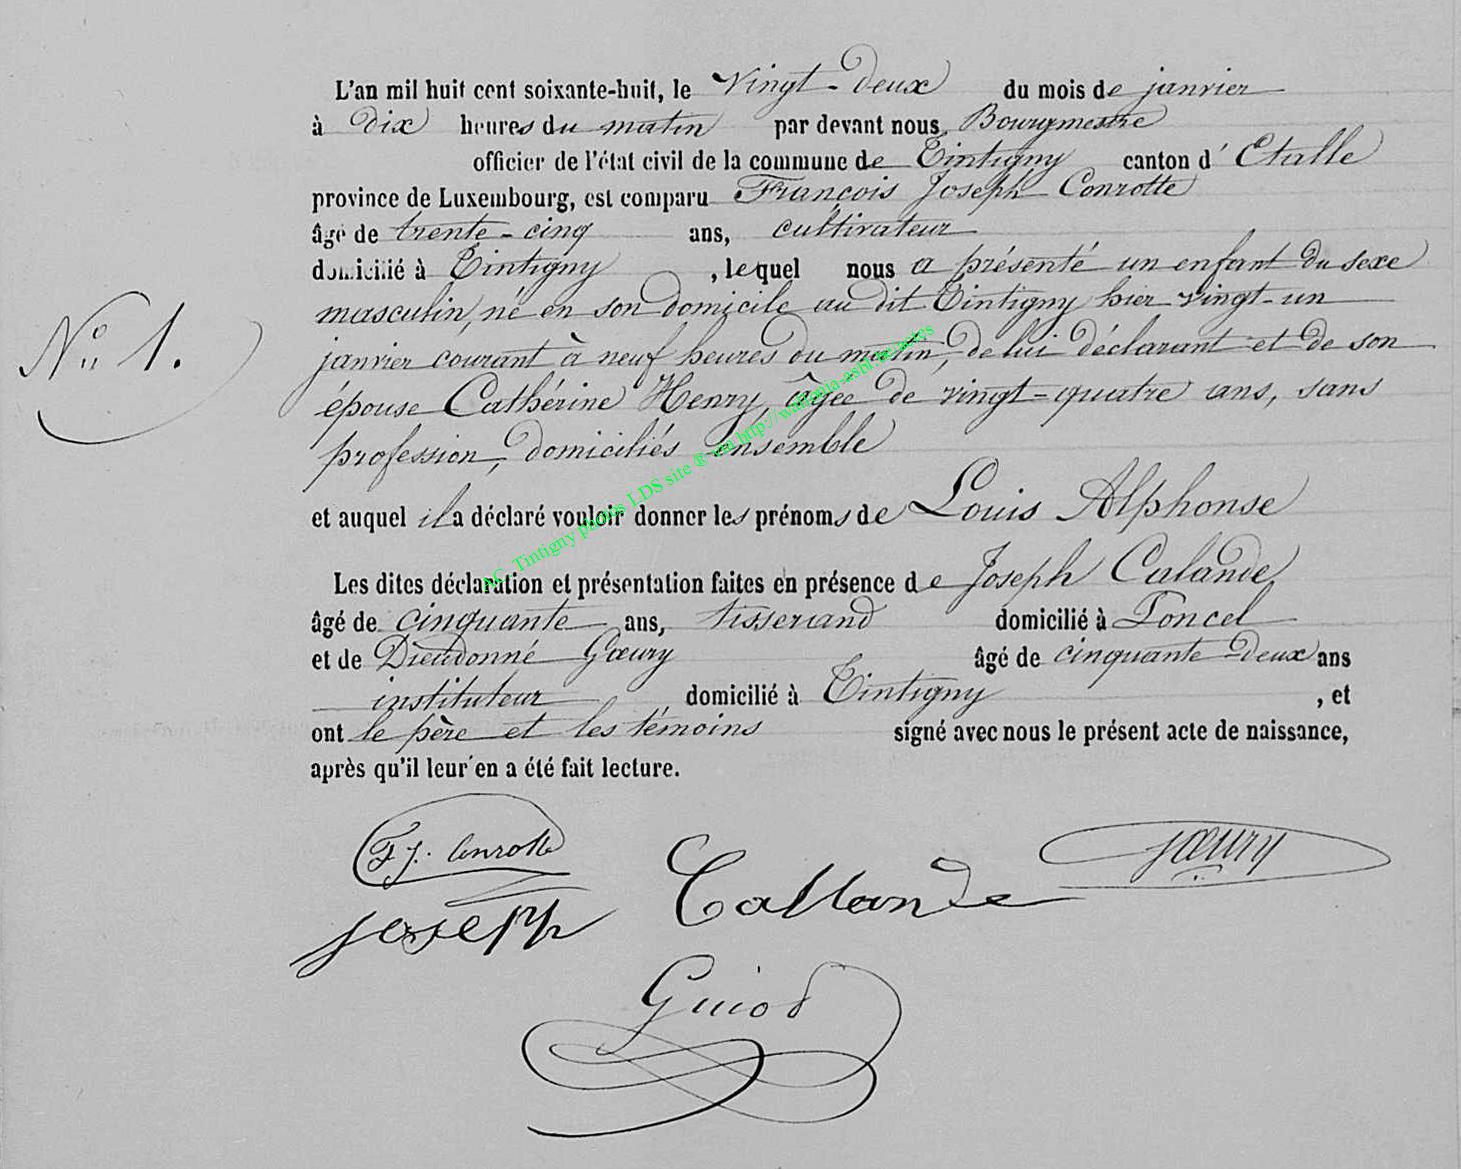 L'an mil huit cent soixante-huit, le Vingt-deux du mois de janvier
à dix heures du matin par devant nous, Bourgmestre
officier de l'état civil de la commune de Tintigny canton d'Etalle
province de Luxembourg, est comparu François Joseph Conrotte
âgé de trente-cinq ans, cultivateur
domicilié à Tintigny, lequel nous a présenté un enfant du sexe
masculin, né en son domicile au dit Tintigny hier vingt-un
N° 1.
janvier courant à neuf heures du matin, de lui déclarant et de son
épouse Cathérine Henry, âgée de vingt-quatre ans, sans
profession, domiciliés ensemble
et auquel il a déclaré vouloir donner les prénoms de Louis Alphonse
Les dites déclaration et présentation faites en présence de Joseph Calande,
âgé de cinquante ans, tisserand domicilié à Poncel
et de Dieudonné Gœury âgé de cinquante-deux ans
instituteur domicilié à Tintigny, et
ont le père et les témoins signé avec nous le présent acte de naissance,
après qu'il leur en a été fait lecture.
AC. Tintigny photos LDS site ® via http://wallonia-asbl.be/actes
F. J. Conrotte
Gœury
Joseph Callande
Guiod